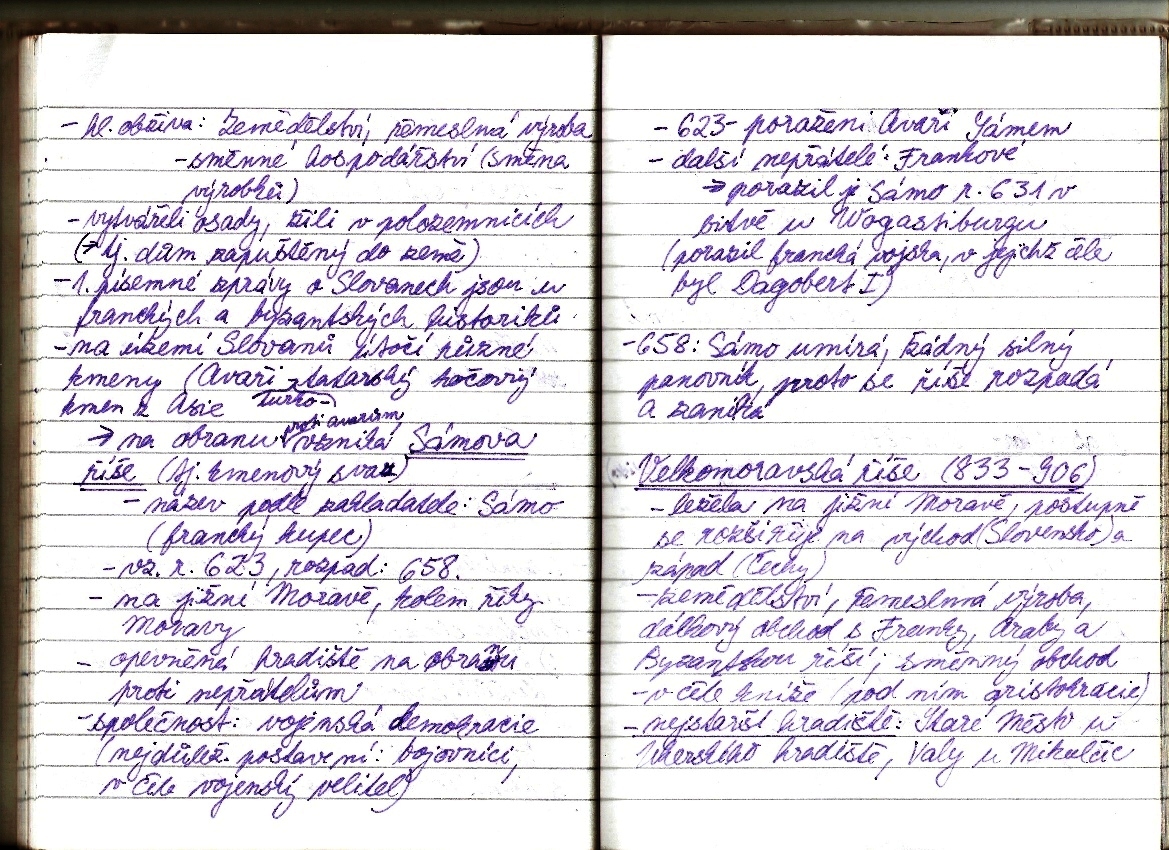 - hl. obživa: Zemědělství, řemeslná výroba
- směnné hospodářství (směna
výrobků)
- vytvářeli osady, žili v polozemnicích
(→ tj. dům zapuštěný do země)
- 1. písemné zprávy o Slovanech jsou u
franckých a byzantských historiků.
- na území Slovanů útočí různé
kmeny (Avaři - tatarský kočovný
kmen z Asie turko-
→ na obranu proti avarům vzniká Sámova
říše (tj. kmenový svaz)
- název podle zakladatele: Sámo
(francký kupec)
- vz. r. 623, rozpad: 658.
- na jižní Moravě, kolem řeky
Moravy
- opevněná hradiště na obranu
proti nepřátelům
- společnost: vojenská demokracie
(nejdůlež. postavení: bojovníci,
v čele vojenský velitel)
- 623 - poraženi Avaři Sámem
- další nepřátelé: Frankové
→ porazil je Sámo r. 631 v
bitvě u Wogastiburgu
(porazil francká vojska, v jejichž čele
byl Dagobert I)
- 658: Sámo umírá, žádný silný
panovník, proto se říše rozpadá
a zaniká
Velkomoravská říše (833 - 906)
- ležela na jižní Moravě, postupně
se rozšiřuje na východ (Slovensko) a
západ (Čechy)
- zemědělství, řemeslnná výroba,
dálkový obchod s Franky, Araby a
Byzantskou říší; směnný obchod
- v čele kníže (pod ním aristokracie)
- nejstarší hradiště: Staré Město u
Uherského hradiště, Valy u Mikulčic